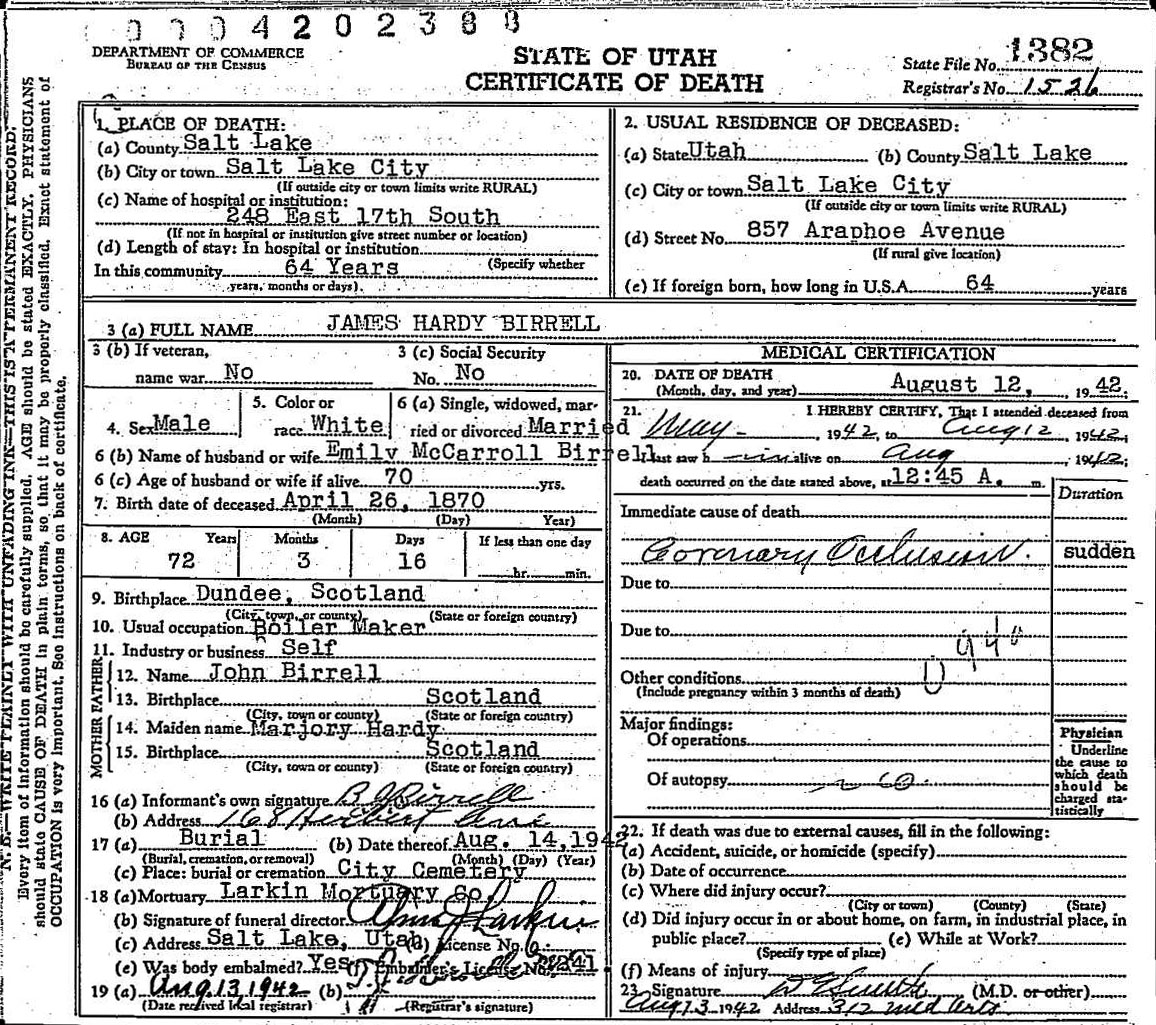 0 0 0 4 2 0 2 3 8 0
DEPARTMENT OF COMMERCE
BUREAU OF THE CENSUS
STATE OF UTAH
CERTIFICATE OF DEATH
State File No. 1382
Registrar's No. 1526
N. B.—WRITE PLAINLY WITH UNFADING INK—THIS IS A PERMANENT RECORD.
Every item of information should be carefully supplied. AGE should be stated EXACTLY. PHYSICIANS
should state CAUSE OF DEATH in plain terms, so that it may be properly classified. Exact statement of
OCCUPATION is very important. See instructions on back of certificate.
1. PLACE OF DEATH:
(a) County Salt Lake
(b) City or town Salt Lake City
(If outside city or town limits write RURAL)
(c) Name of hospital or institution:
248 East 17th South
(If not in hospital or institution give street number or location)
(d) Length of stay: In hospital or institution
(Specify whether
In this community 64 Years
years, months or days).
2. USUAL RESIDENCE OF DECEASED:
(a) State Utah (b) County Salt Lake
(c) City or town Salt Lake City
(If outside city or town limits write RURAL)
(d) Street No. 857 Araphoe Avenue
(If rural give location)
(e) If foreign born, how long in U.S.A. 64 years
3 (a) FULL NAME JAMES HARDY BIRRELL
3 (b) If veteran, 3 (c) Social Security
name war No No. No
4. Sex Male
5. Color or
race White
6 (a) Single, widowed, mar-
ried or divorced Married
6 (b) Name of husband or wife Emily McCarroll Birrell
6 (c) Age of husband or wife if alive 70 yrs.
7. Birth date of deceased April 26, 1870
(Month) (Day) Year)
8. AGE Years Months Days If less than one day
72 3 16 hr. min.
9. Birthplace Dundee, Scotland
(City, town, or county) (State or foreign country)
10. Usual occupation Boiler Maker
11. Industry or business Self
FATHER
12. Name John Birrell
13. Birthplace Scotland
(City, town or county) (State or foreign country)
MOTHER
14. Maiden name Marjory Hardy
15. Birthplace Scotland
(City, town or county) (State or foreign country)
16 (a) Informant's own signature B J Birrell
(b) Address 168 Herbert Ave
17 (a) Burial (b) Date thereof Aug. 14, 1942
(Burial, cremation, or removal) (Month) (Day) (Year)
(c) Place: burial or cremation City Cemetery
18 (a) Mortuary Larkin Mortuary Co.
(b) Signature of funeral director Larkin
(c) Address Salt Lake, Utah (d) License No.
(e) Was body embalmed? Yes (f) Embalmer's License No.
19 (a) Aug. 13, 1942 (b)
(Date received local registrar) (Registrar's signature)
MEDICAL CERTIFICATION
20. DATE OF DEATH
(Month, day, and year) August 12, 1942.
21. I HEREBY CERTIFY, That I attended deceased from
May 1942, to Aug 12 1942;
I last saw him alive on Aug 1942;
death occurred on the date stated above, at 12:45 A. m.
Duration
Immediate cause of death
Coronary Occlusion. sudden
Due to
Due to
94
Other conditions
(Include pregnancy within 3 months of death)
Major findings:
Of operations
Of autopsy no
Physician
Underline
the cause to
which death
should be
charged sta-
tistically
22. If death was due to external causes, fill in the following:
(a) Accident, suicide, or homicide (specify)
(b) Date of occurrence
(c) Where did injury occur?
(City or town) (County) (State)
(d) Did injury occur in or about home, on farm, in industrial place, in
public place? (e) While at Work?
(Specify type of place)
(f) Means of injury
23. Signature (M.D. or other)
Aug 13 1942 Address 312 Med Arts